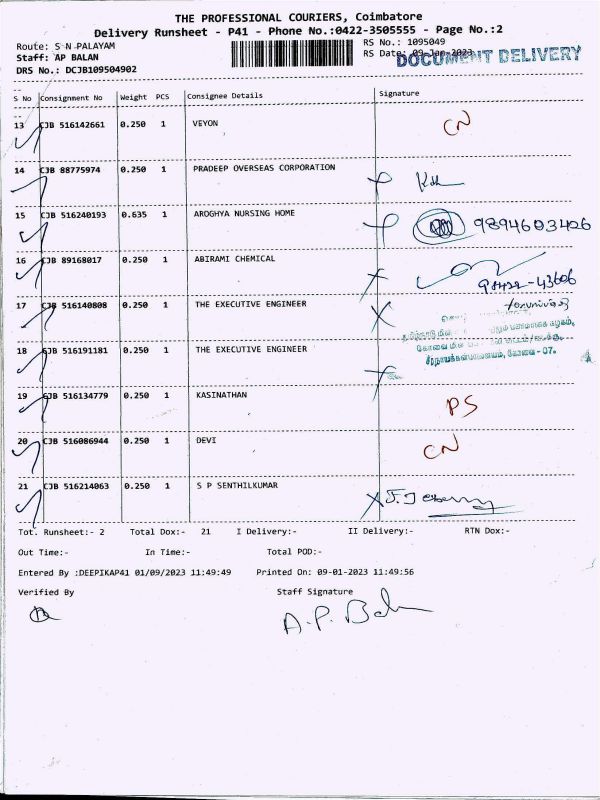 THE PROFESSIONAL COURIERS, Coimbatore
Delivery Runsheet - P41 - Phone No.:0422-3505555 - Page No.:2
Route: S N PALAYAM RS No.: 1095049
Staff: AP BALAN RS Date: 09-Jan-2023 DOCUMENT DELIVERY
DRS No.: DCJB109504902
S No Consignment No Weight PCS Consignee Details Signature
13 CJB 516142661 0.250 1 VEYON CN
14 CJB 88775974 0.250 1 PRADEEP OVERSEAS CORPORATION
15 CJB 516240193 0.635 1 AROGHYA NURSING HOME 9894603426
16 CJB 89168017 0.250 1 ABIRAMI CHEMICAL 98422-43606
17 CJB 516140808 0.250 1 THE EXECUTIVE ENGINEER
18 CJB 516191181 0.250 1 THE EXECUTIVE ENGINEER கோவை - 07.
19 CJB 516134779 0.250 1 KASINATHAN PS
20 CJB 516086944 0.250 1 DEVI CN
21 CJB 516214063 0.250 1 S P SENTHILKUMAR
Tot. Runsheet:- 2 Total Dox:- 21 I Delivery:- II Delivery:- RTN Dox:-
Out Time:- In Time:- Total POD:-
Entered By :DEEPIKAP41 01/09/2023 11:49:49 Printed On: 09-01-2023 11:49:56
Verified By Staff Signature
A.P. Bal